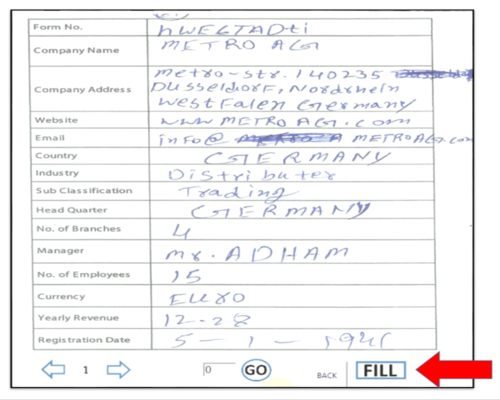 Form No. hWEGTADti
Company Name METRO AG
Company Address metro-str. 140235
DUsseldorF, Nordrhein
Westfalen Germany
Website www METRO AG.com
Email info@ METRO AG.com
Country GERMANY
Industry Distributer
Sub Classification Trading
Head Quarter GERMANY
No. of Branches 4
Manager mr. ADHAM
No. of Employees 15
Currency EURO
Yearly Revenue 12-28
Registration Date 5-1-
1 0 GO BACK FILL